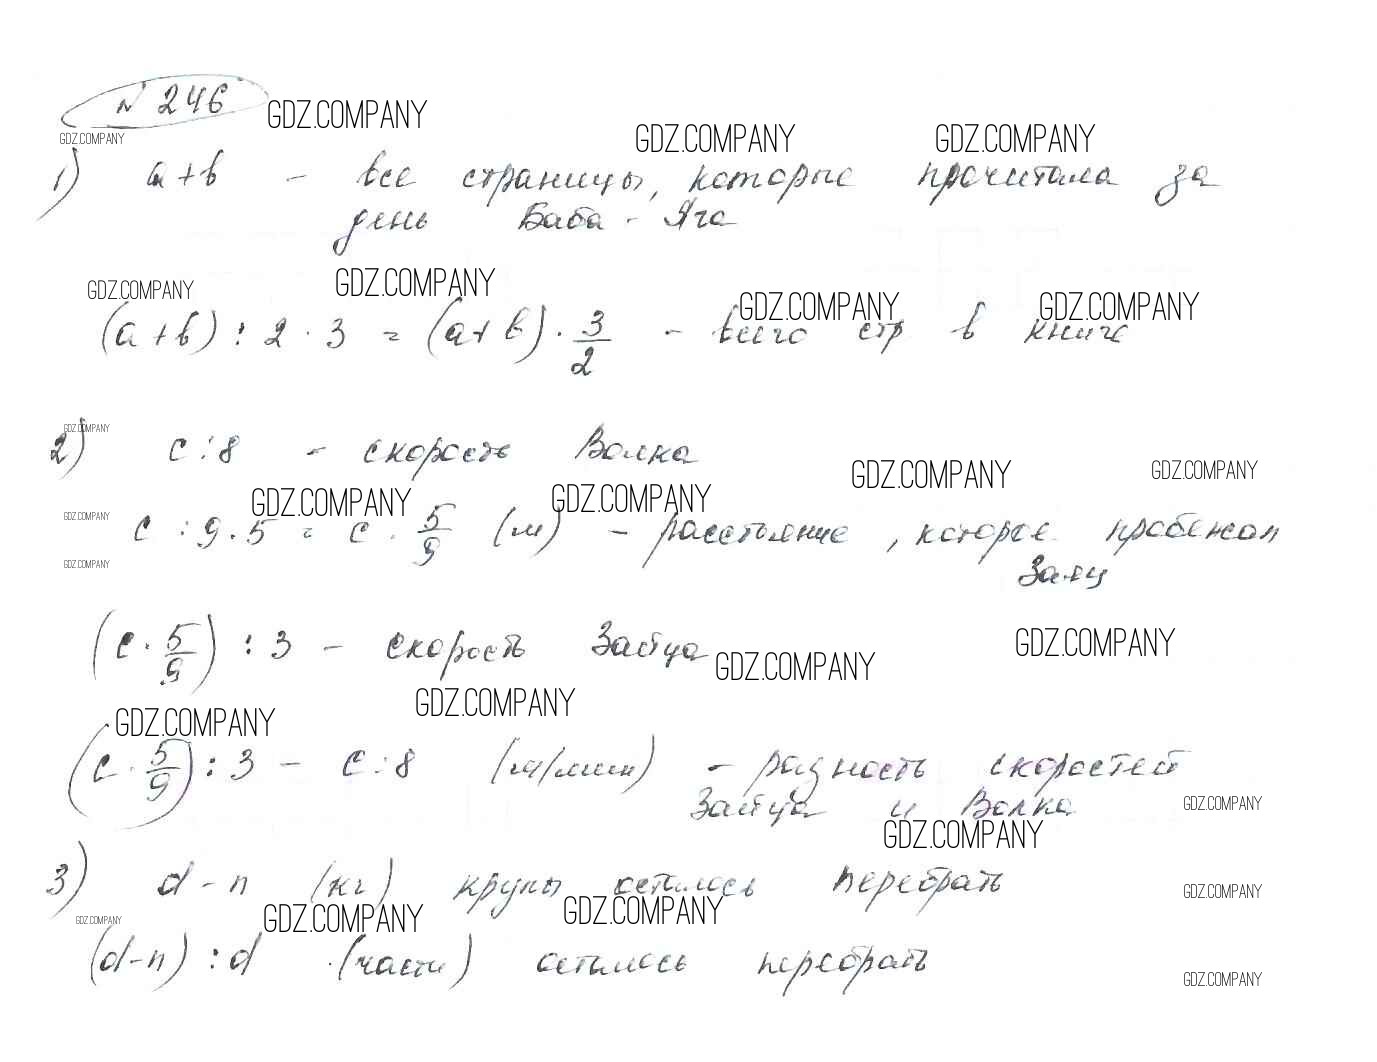 № 246
GDZ.COMPANY
GDZ.COMPANY
GDZ.COMPANY
GDZ.COMPANY
1) a+b - все страницы, которые прочитала за
день Баба-Яга
GDZ.COMPANY
GDZ.COMPANY
GDZ.COMPANY
GDZ.COMPANY
(a+b) : 2 · 3 = (a+b) · 3/2 - всего стр в книге
GDZ.COMPANY
2) c : 8 - скорость Волка
GDZ.COMPANY
GDZ.COMPANY
GDZ.COMPANY
GDZ.COMPANY
GDZ.COMPANY
c : 9 · 5 = c · 5/9 (м) - расстояние, которое пробежал
GDZ.COMPANY
Заяц
(c · 5/9) : 3 - скорость Зайца
GDZ.COMPANY
GDZ.COMPANY
GDZ.COMPANY
GDZ.COMPANY
(c · 5/9) : 3 - c : 8 (м/мин) - разность скоростей
Зайца и Волка
GDZ.COMPANY
GDZ.COMPANY
3) d - n (кг) крупы осталось перебрать
GDZ.COMPANY
GDZ.COMPANY
GDZ.COMPANY
GDZ.COMPANY
(d-n) : d (части) осталось перебрать
GDZ.COMPANY